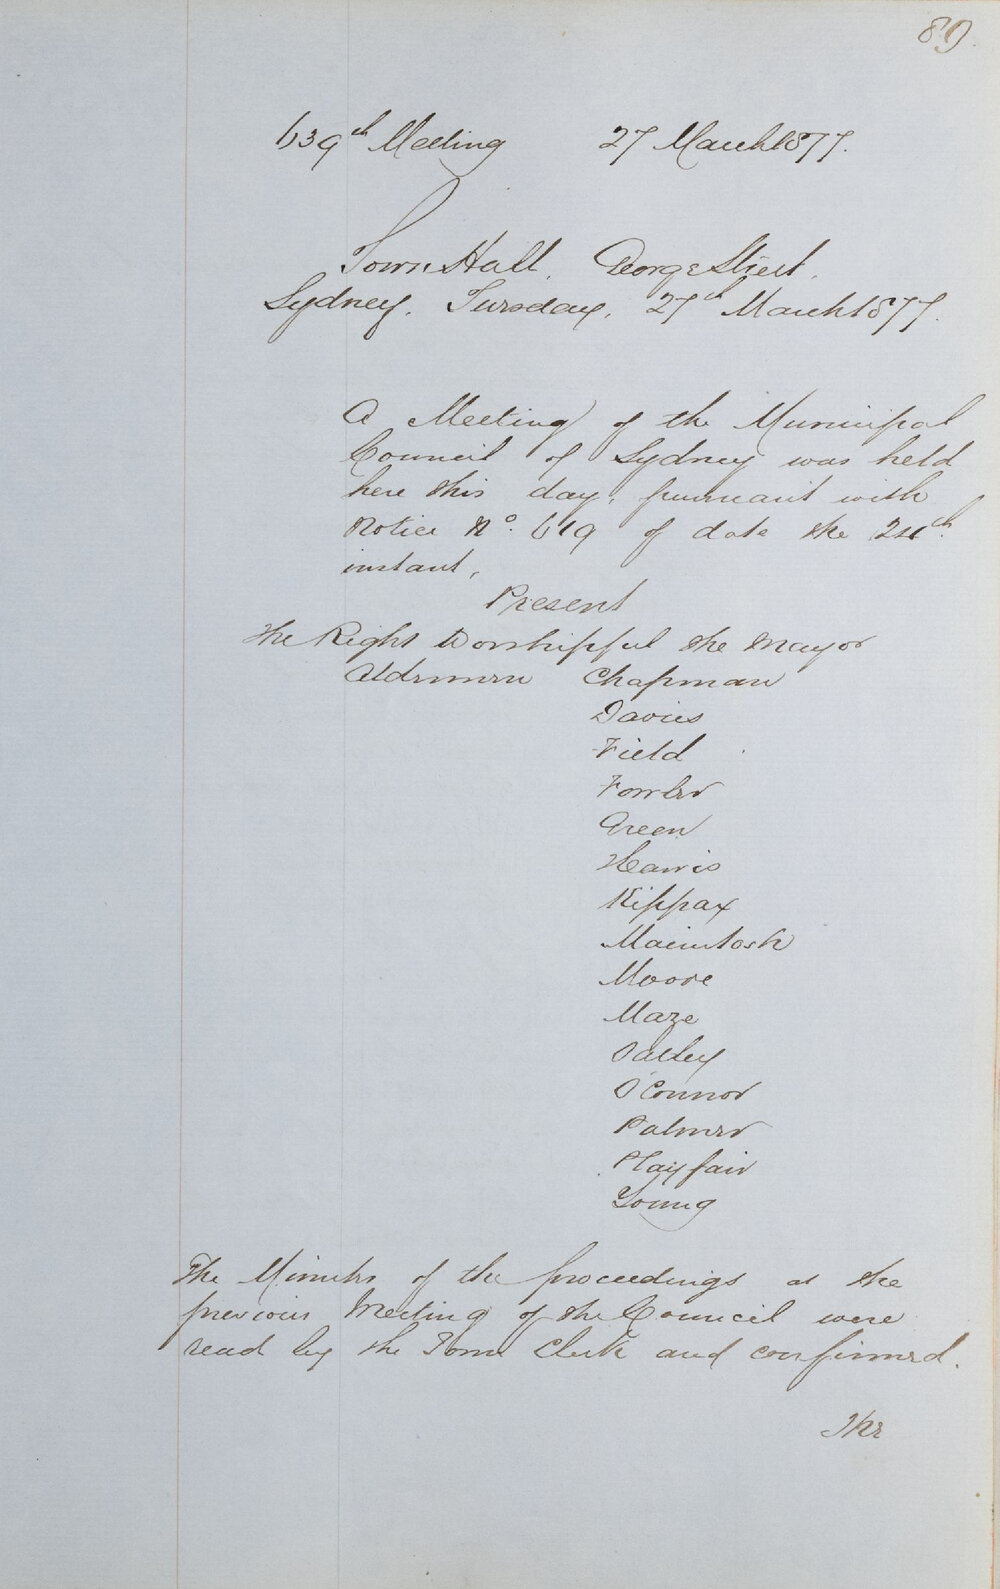 89.
639th Meeting 27 March 1877.
Town Hall, George Street,
Sydney, Tuesday, 27th March 1877.
A Meeting of the Municipal
Council of Sydney was held
here this day, pursuant with
Notice No. 619 of date the 24th
instant,
Present
The Right Worshipful the Mayor
Aldermen Chapman
Davies
Field
Fowler
Green
Harris
Kippax
Macintosh
Moore
Maze
Oatley
O'Connor
Palmer
Playfair
Young
The Minutes of the proceedings at the
previous Meeting of the Council were
read by the Town Clerk and confirmed.
The